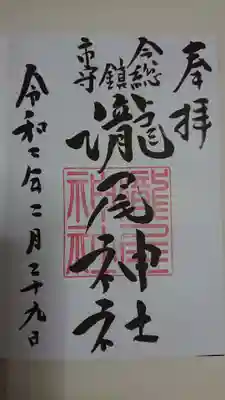 奉拝
今市総鎮守
瀧尾神社
瀧尾神社
令和二年二月二十九日